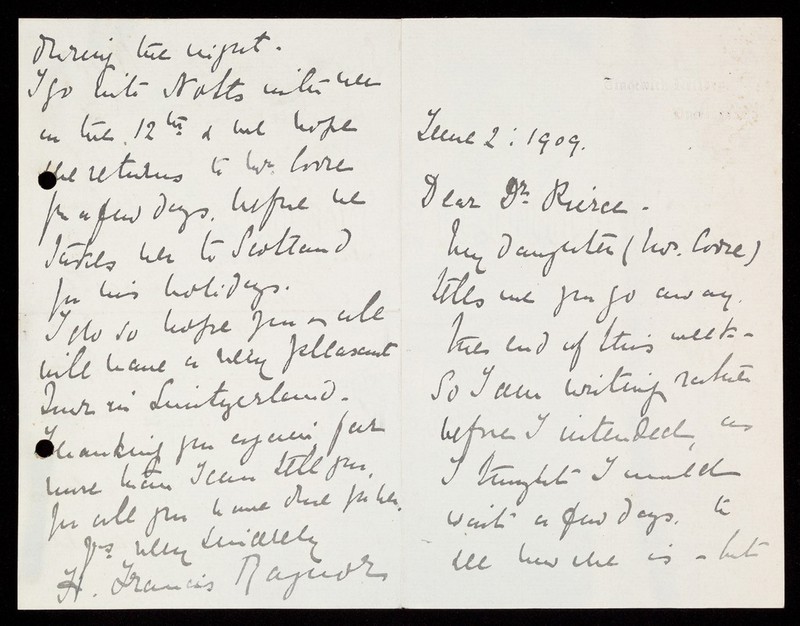 June 2: 1909.
Dear Dr. Pierce -
My daughter (Mrs. Coore)
tells me you go away
the end of this week -
So I am writing rather
before I intended, as
I thought I would
wait a few days, to
see how she is - but
during the night -
I go into Notts with her
on the 12th & we hope
she returns to Mr. Coore
for a few days, before he
takes her to Scotland
for his holidays.
I do so hope you all
will have a very pleasant
Tour in Switzerland -
Thanking you again far
more than I can tell you,
for all you have done for her.
Yrs very Sincerely
H. Francis Raynor